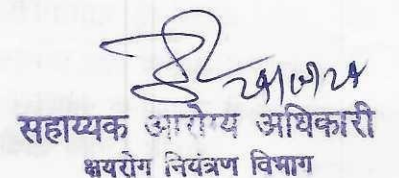 सहाय्यक आरोग्य अधिकारी
क्षयरोग नियंत्रण विभाग